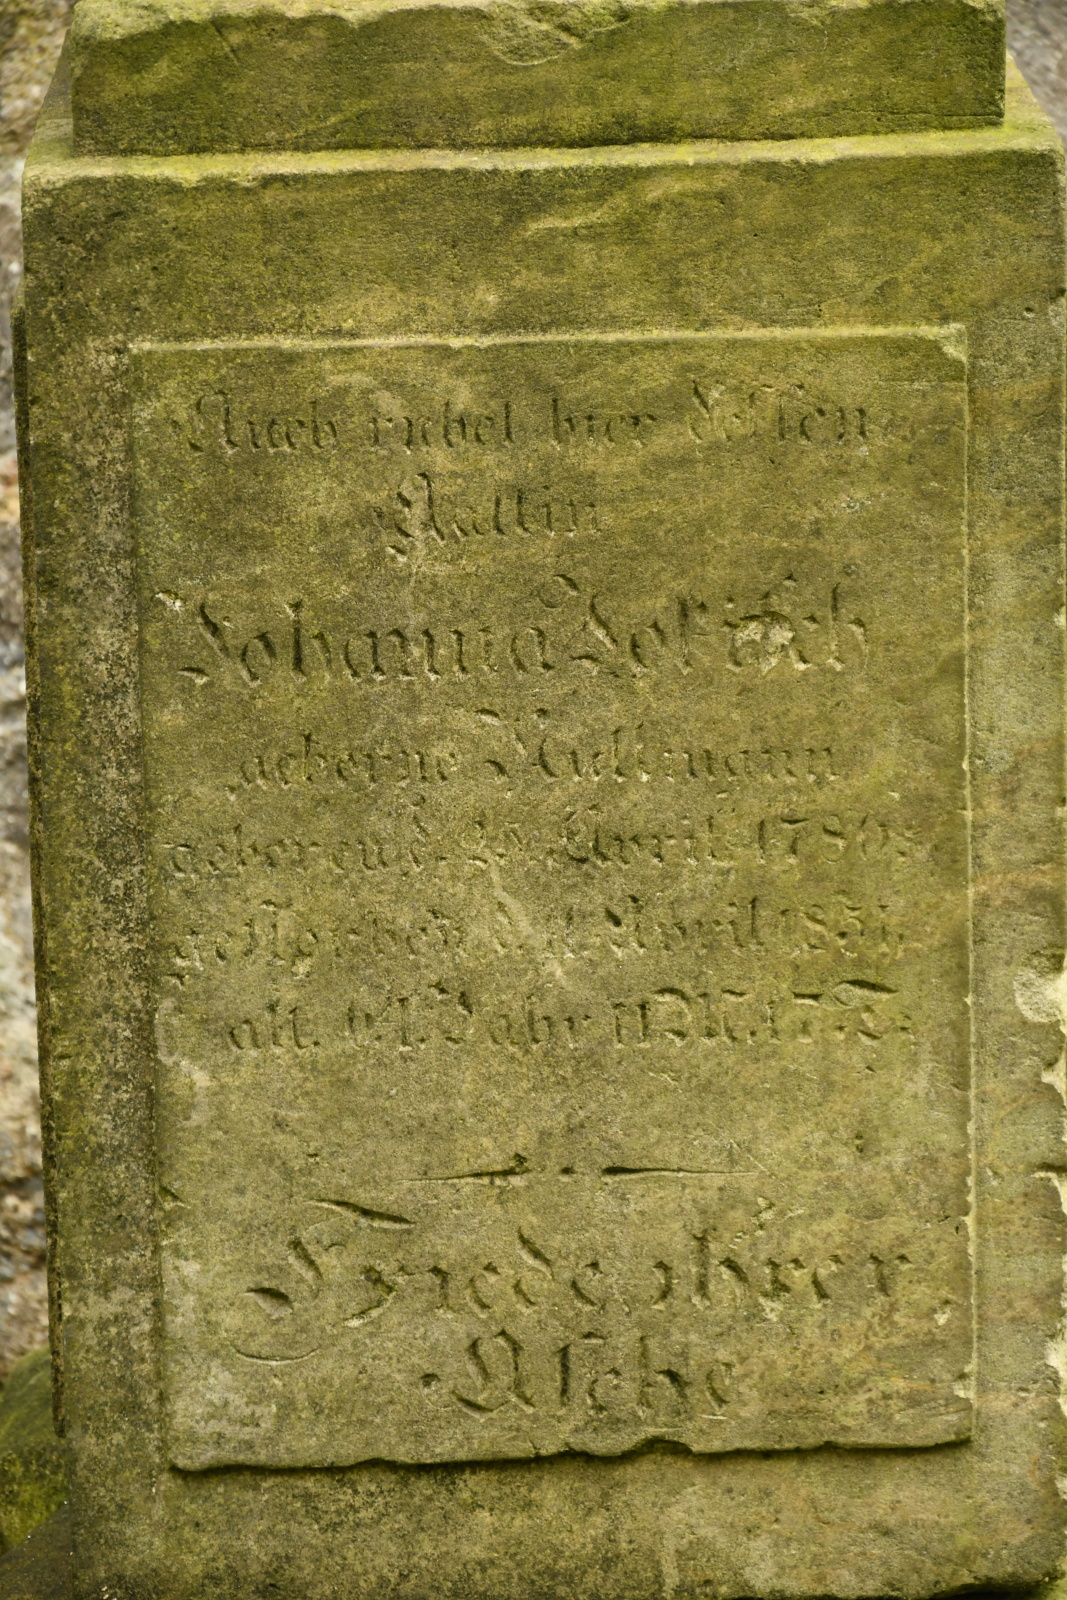 Auch ruhet hier dessen
Gattin
Johanna
geborne Kullmann
geboren d. 25. April 1780.
gestorben d. 11. April 185
alt. Jahr 11 M. 17. T.
Friede ihrer
Asche